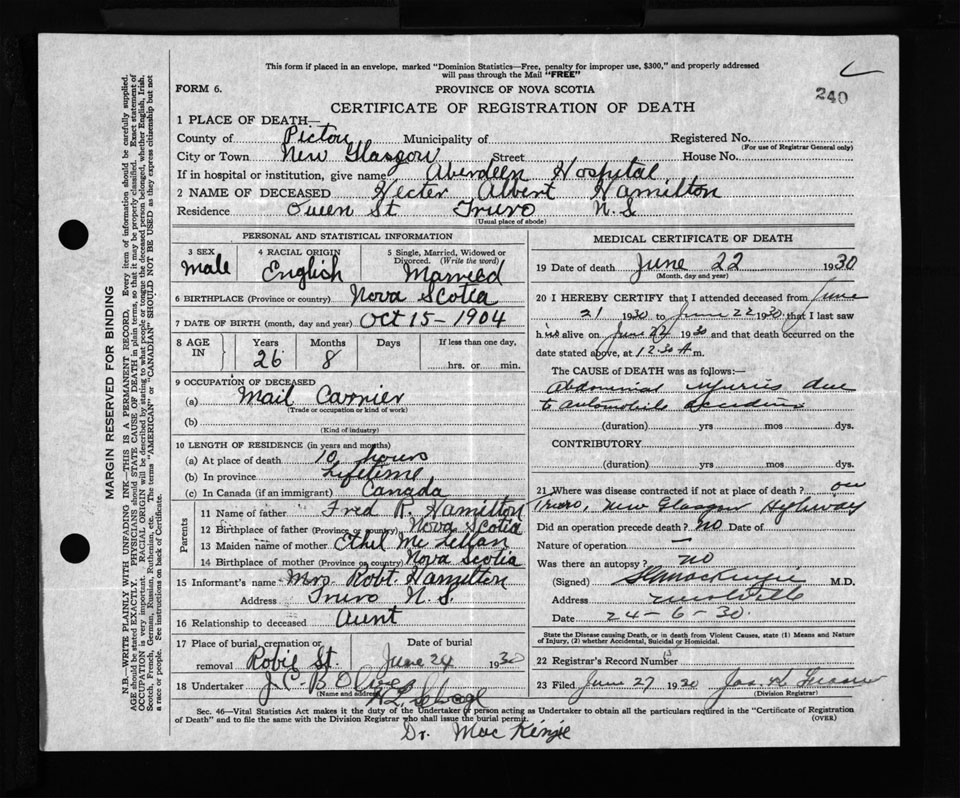 This form if placed in an envelope, marked "Dominion Statistics—Free, penalty for improper use, $300," and properly addressed
will pass through the Mail "FREE"
240
FORM 6.
PROVINCE OF NOVA SCOTIA
CERTIFICATE OF REGISTRATION OF DEATH
1 PLACE OF DEATH—
County of Pictou Municipality of Registered No.
(For use of Registrar General only)
City or Town New Glasgow Street House No.
If in hospital or institution, give name Aberdeen Hospital
2 NAME OF DECEASED Hector Albert Hamilton
Residence Queen St Truro N.S.
(Usual place of abode)
PERSONAL AND STATISTICAL INFORMATION
3 SEX Male
4 RACIAL ORIGIN English
5 Single, Married, Widowed or Divorced. (Write the word) Married
6 BIRTHPLACE (Province or country) Nova Scotia
7 DATE OF BIRTH (month, day and year) Oct 15 - 1904
8 AGE IN Years 26 Months 8 Days If less than one day, hrs. or min.
9 OCCUPATION OF DECEASED
(a) Mail Carrier
(Trade or occupation or kind of work)
(b)
(Kind of industry)
10 LENGTH OF RESIDENCE (in years and months)
(a) At place of death 10 hours
(b) In province Lifetime
(c) In Canada (if an immigrant) Canada
Parents
11 Name of father Fred R. Hamilton
12 Birthplace of father (Province or country) Nova Scotia
13 Maiden name of mother Ethel McLellan
14 Birthplace of mother (Province or country) Nova Scotia
15 Informant's name Mrs. Robt. Hamilton
Address Truro N.S.
16 Relationship to deceased Aunt
17 Place of burial, cremation or removal Robie St. Date of burial June 24 1930
18 Undertaker J.C.B. Olive
(Name and address)
MEDICAL CERTIFICATE OF DEATH
19 Date of death June 22 1930
(Month, day and year)
20 I HEREBY CERTIFY that I attended deceased from June
21 1930 to June 22 1930 that I last saw
him alive on June 22 1930 and that death occurred on
date stated above, at 12.30 A m.
The CAUSE of DEATH was as follows:—
Abdominal injuries due
to automobile accident
(duration) yrs mos dys.
CONTRIBUTORY
(duration) yrs mos dys.
21 Where was disease contracted if not at place of death? on
Truro, New Glasgow Highway
Did an operation precede death? no Date of
Nature of operation —
Was there an autopsy? no
(Signed) MacKenzie M.D.
Address
Date 24-6-30.
State the Disease causing Death, or in death from Violent Causes, state (1) Means and Nature
of Injury, (2) whether Accidental, Suicidal or Homicidal.
22 Registrar's Record Number
23 Filed June 27 1930 Jas. H.
(Division Registrar)
Sec. 46—Vital Statistics Act makes it the duty of the Undertaker or person acting as Undertaker to obtain all the particulars required in the "Certificate of Registration
of Death" and to file the same with the Division Registrar who shall issue the burial permit.
(OVER)
Dr. MacKinzie
MARGIN RESERVED FOR BINDING
N.B.—WRITE PLAINLY WITH UNFADING INK—THIS IS A PERMANENT RECORD. Every item of information should be carefully supplied.
AGE should be stated EXACTLY. PHYSICIANS should STATE CAUSE OF DEATH in plain terms, so that it may be properly classified. Exact statement of
OCCUPATION is very important. RACIAL ORIGIN will be described by stating to what people or tongue the deceased person belonged, whether English, Irish,
Scotch, French, German, Russian, Ruthenian, etc. The terms "AMERICAN" or "CANADIAN" SHOULD NOT BE USED as they express citizenship but not
a race or people. See instructions on back of Certificate.